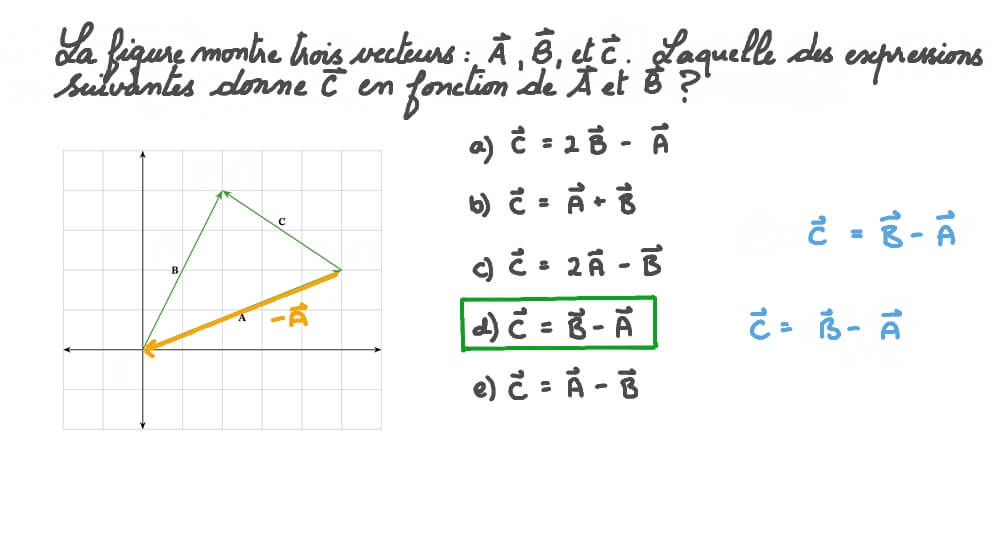 La figure montre trois vecteurs : A⃗, B⃗, et C⃗. Laquelle des expressions
suivantes donne C⃗ en fonction de A⃗ et B⃗ ?
a) C⃗ = 2B⃗ - A⃗
b) C⃗ = A⃗ + B⃗
C⃗ = B⃗ - A⃗
c) C⃗ = 2A⃗ - B⃗
d) C⃗ = B⃗ - A⃗
C⃗ = B⃗ - A⃗
e) C⃗ = A⃗ - B⃗
C
B
A
-A⃗